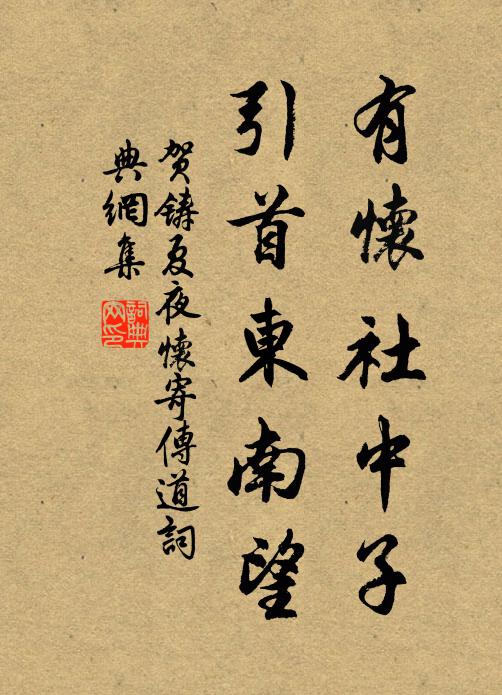 有懷社中子
引首東南望
贺鑄夏夜懷寄傳道詞
典網集
詞典
网印